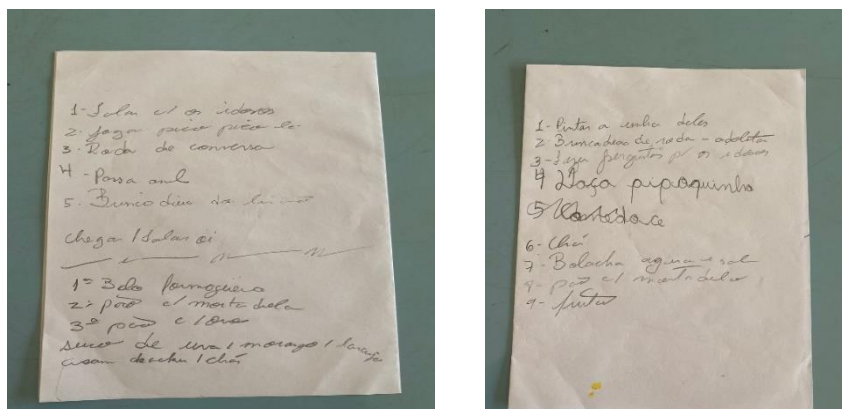 1 - Falar c/ os idosos
2 - Joga pico pico lo
3 - Roda de conversa
4 - Passa anel
5. Brincadeira de
chega / falar oi
1º Bolo formigueiro
2º pão c/ mortadela
3º pão c/ ovo
suco de uva / morango / laranja
/ chá
1 - Pintar a unha deles
2 Brincadeira de roda - adoleta
3 - perguntas p/ os idosos
4 Laça pipoquinha
6 - Chá
7 - Bolacha agua e sal
8 - pão c/ mortadela
9 - frutas